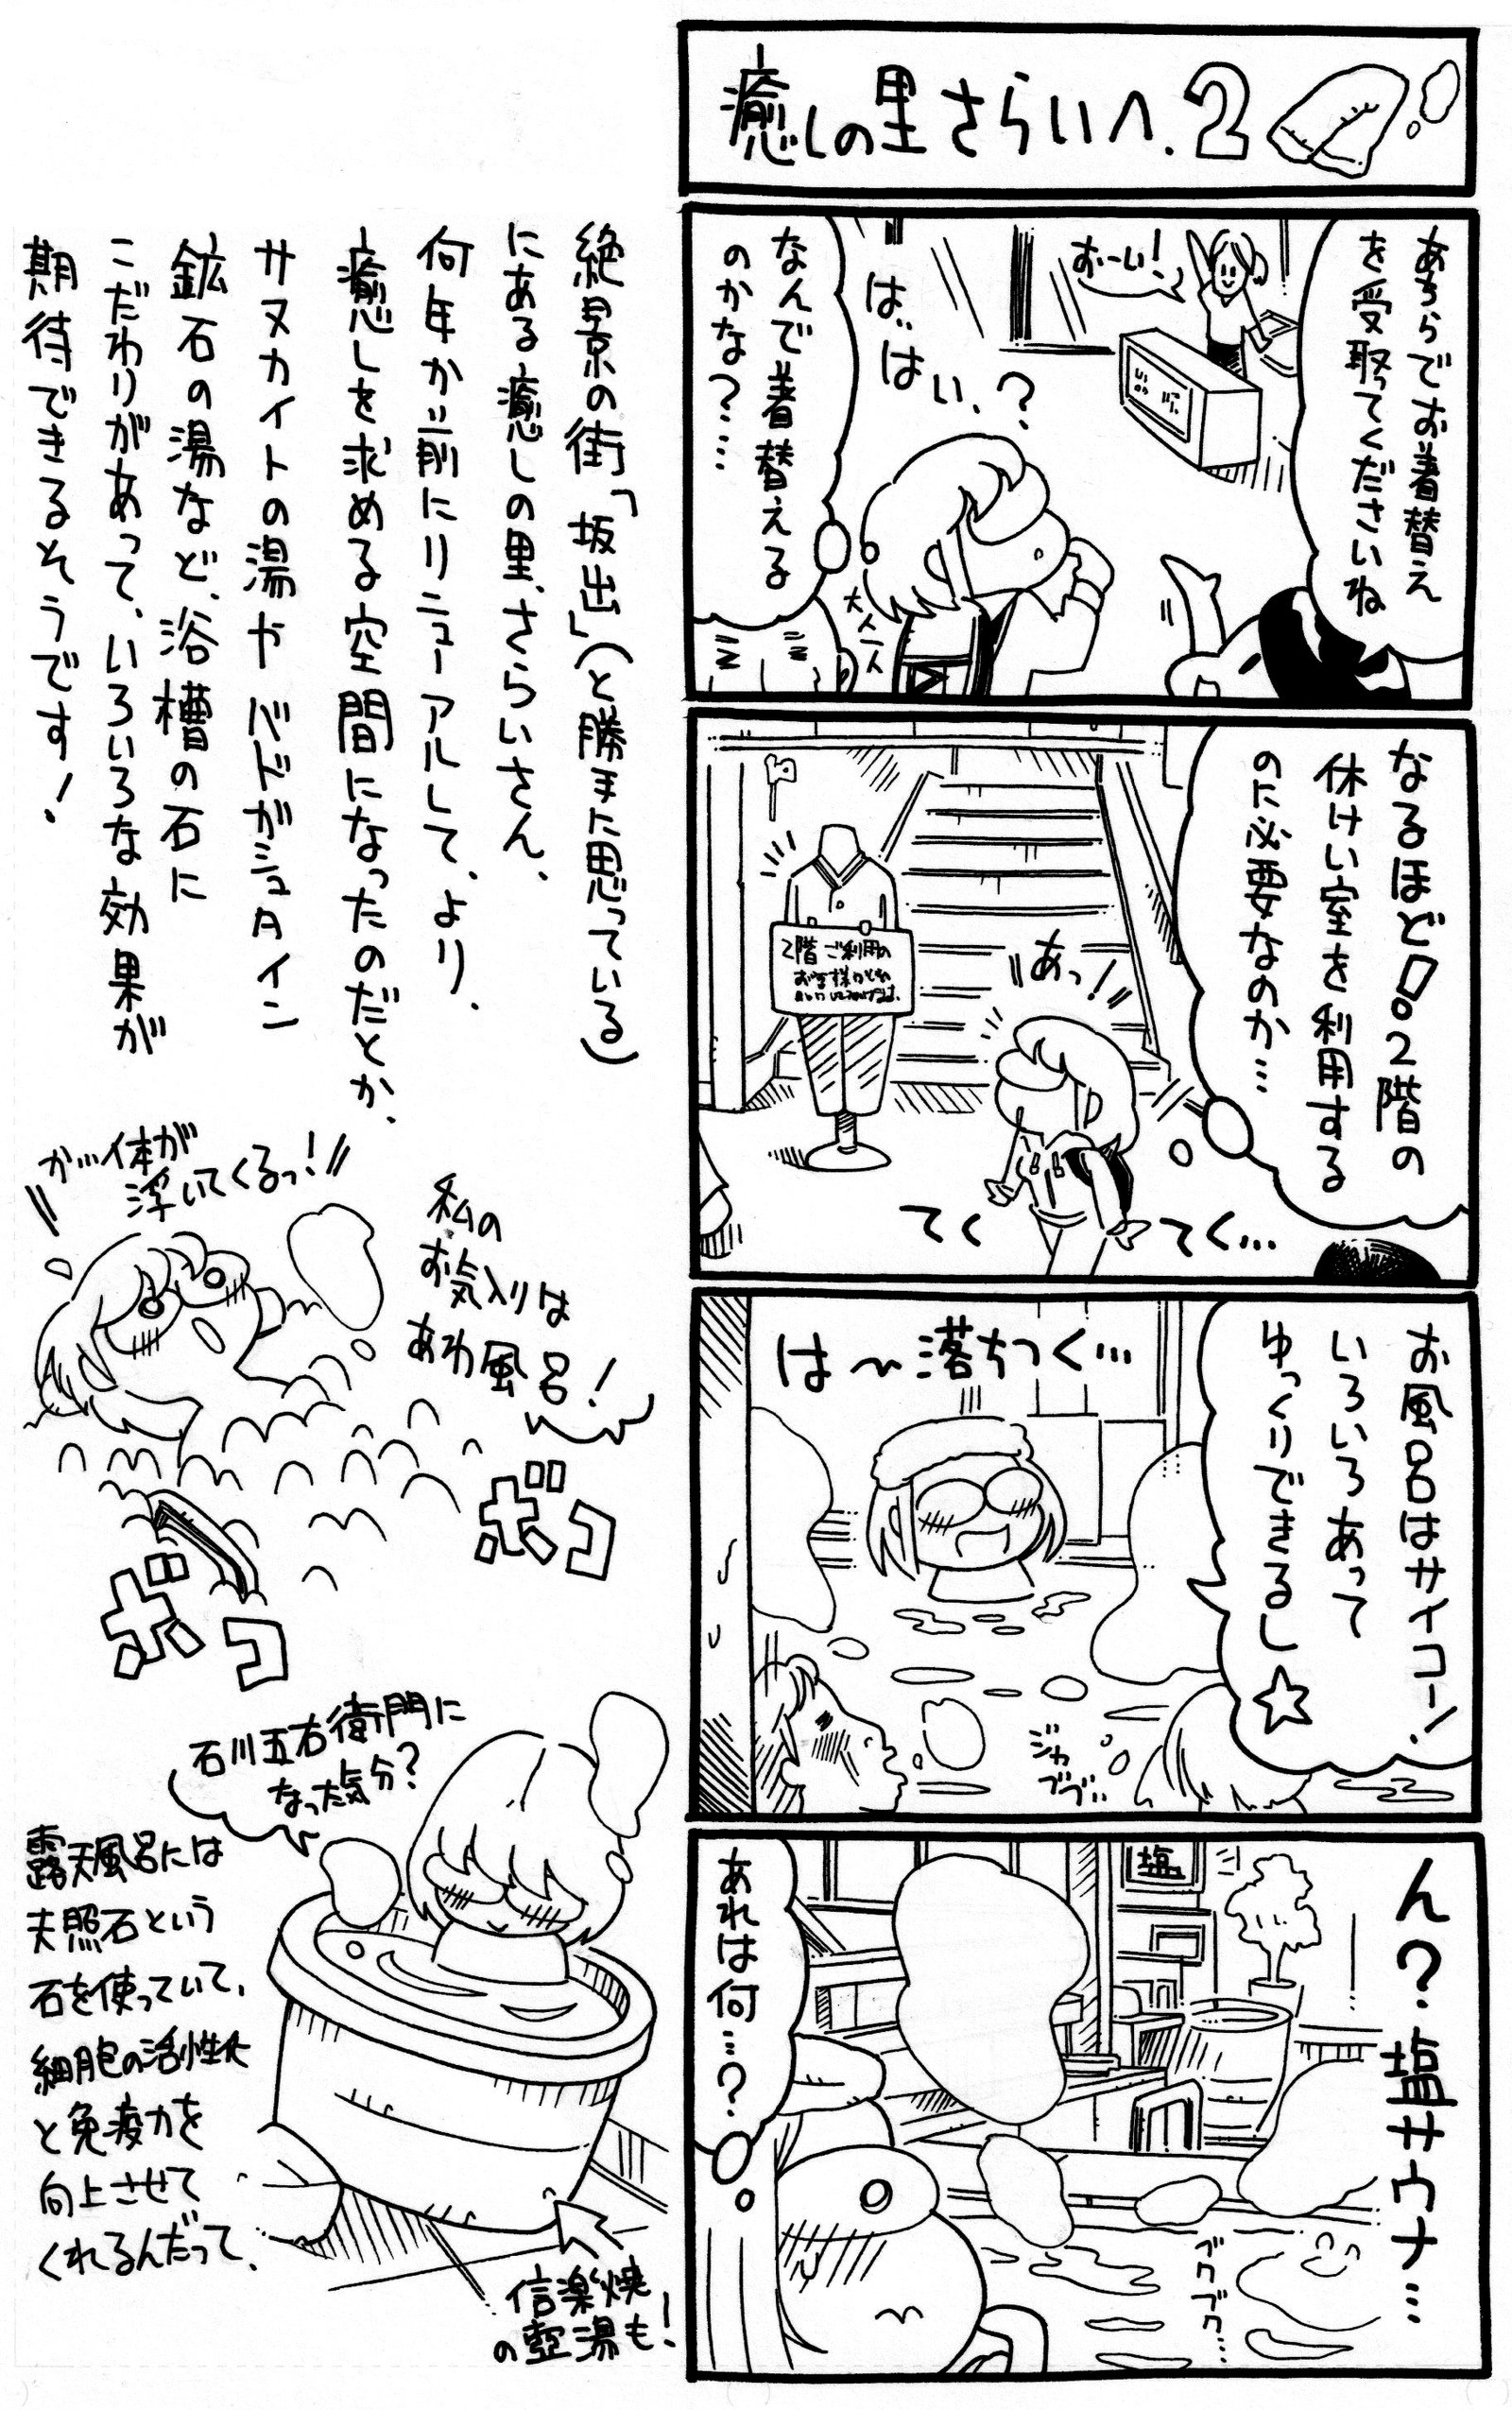 癒しの里さらいへ.2
あちらでお着替え
を受取ってくださいね
おーい!
は、はい、?
なんで着替える
のかな?…
大人一人
なるほど!。2階の
休けい室を利用する
のに必要なのか…
あっ!
2階ご利用の
お客様は
てくてく…
お風呂はサイコー!
いろいろあって
ゆっくりできるし☆
は〜落ちつく…
ジャブブ…
ん?塩サウナ…
塩
あれは何…?
ブクブク…
絶景の街「坂出」(と勝手に思っている)
にある癒しの里、さらいさん、
何年か前にリニューアルして、より、
癒しを求める空間になったのだとか、
サヌカイトの湯やバドガシュタイン
鉱石の湯など、浴槽の石に
こだわりがあって、いろいろな効果が
期待できるそうです!
か…体が
浮いてくるっ!
私の
お気入りは
あわ風呂!
ボコ
ボコ
石川五右衛門に
なった気分?
露天風呂には
天照石という
石を使っていて、
細胞の活性化
と免疫力を
向上させて
くれるんだって、
信楽焼
の壺湯も!